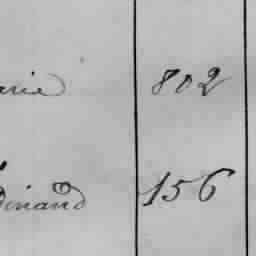 arie 802
dinand 156